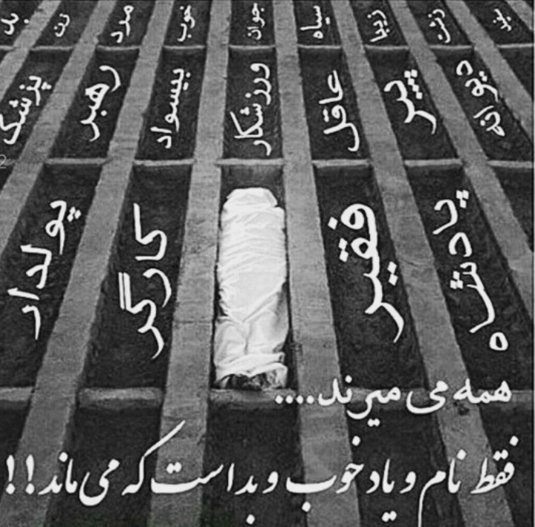 سفید زشت زیبا سیاه جوان خوب مدد زن بد
دیوانه پیر عاقل ورزشکار بیسواد رهبر پزشک
پادشاه فقیر کارگر پولدار
همه می میرند....
فقط نام و یاد خوب و بد است که می ماند!!